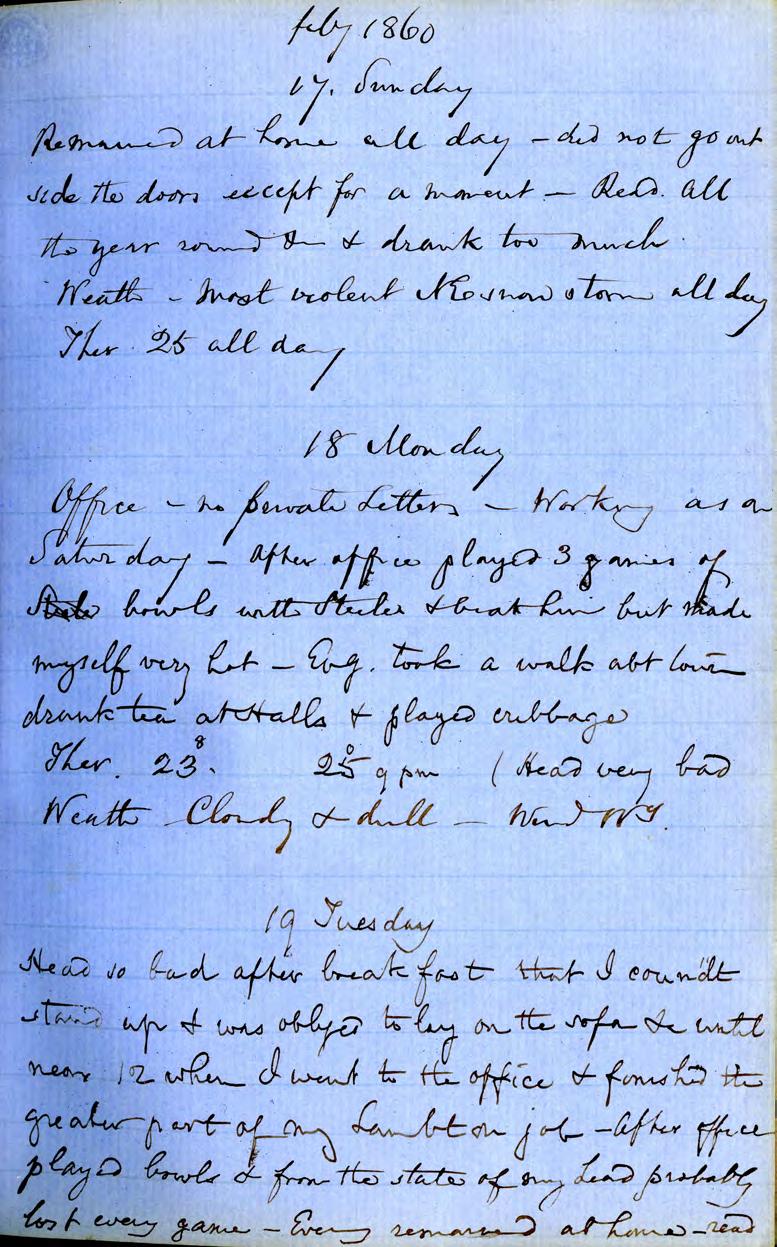 feby 1860
17. Sunday
Remained at home all day - did not go out
side the doors except for a moment - Read. All
the year round &c & drank too much
Weath - Most violent NE snow storm all day
Ther. 25 all day
18 Monday
Office - no private Letters - Working as on
Saturday - After office played 3 games of
Steele bowls with Steele & beat him but made
myself very hot - Evg. took a walk abt town
drank tea at Halls & played cribbage
Ther. 23. 8 25° 9 pm (Head very bad
Weath Cloudy & dull - Wind
19 Tuesday
Head so bad after breakfast that I coun'dt
stand up & was obliged to lay on the sofa &c until
near 12 when I went to the office & finished the
greater part of my Lambton job - After office
played bowls & from the state of my head probably
lost every game - Eveng remained at home - read